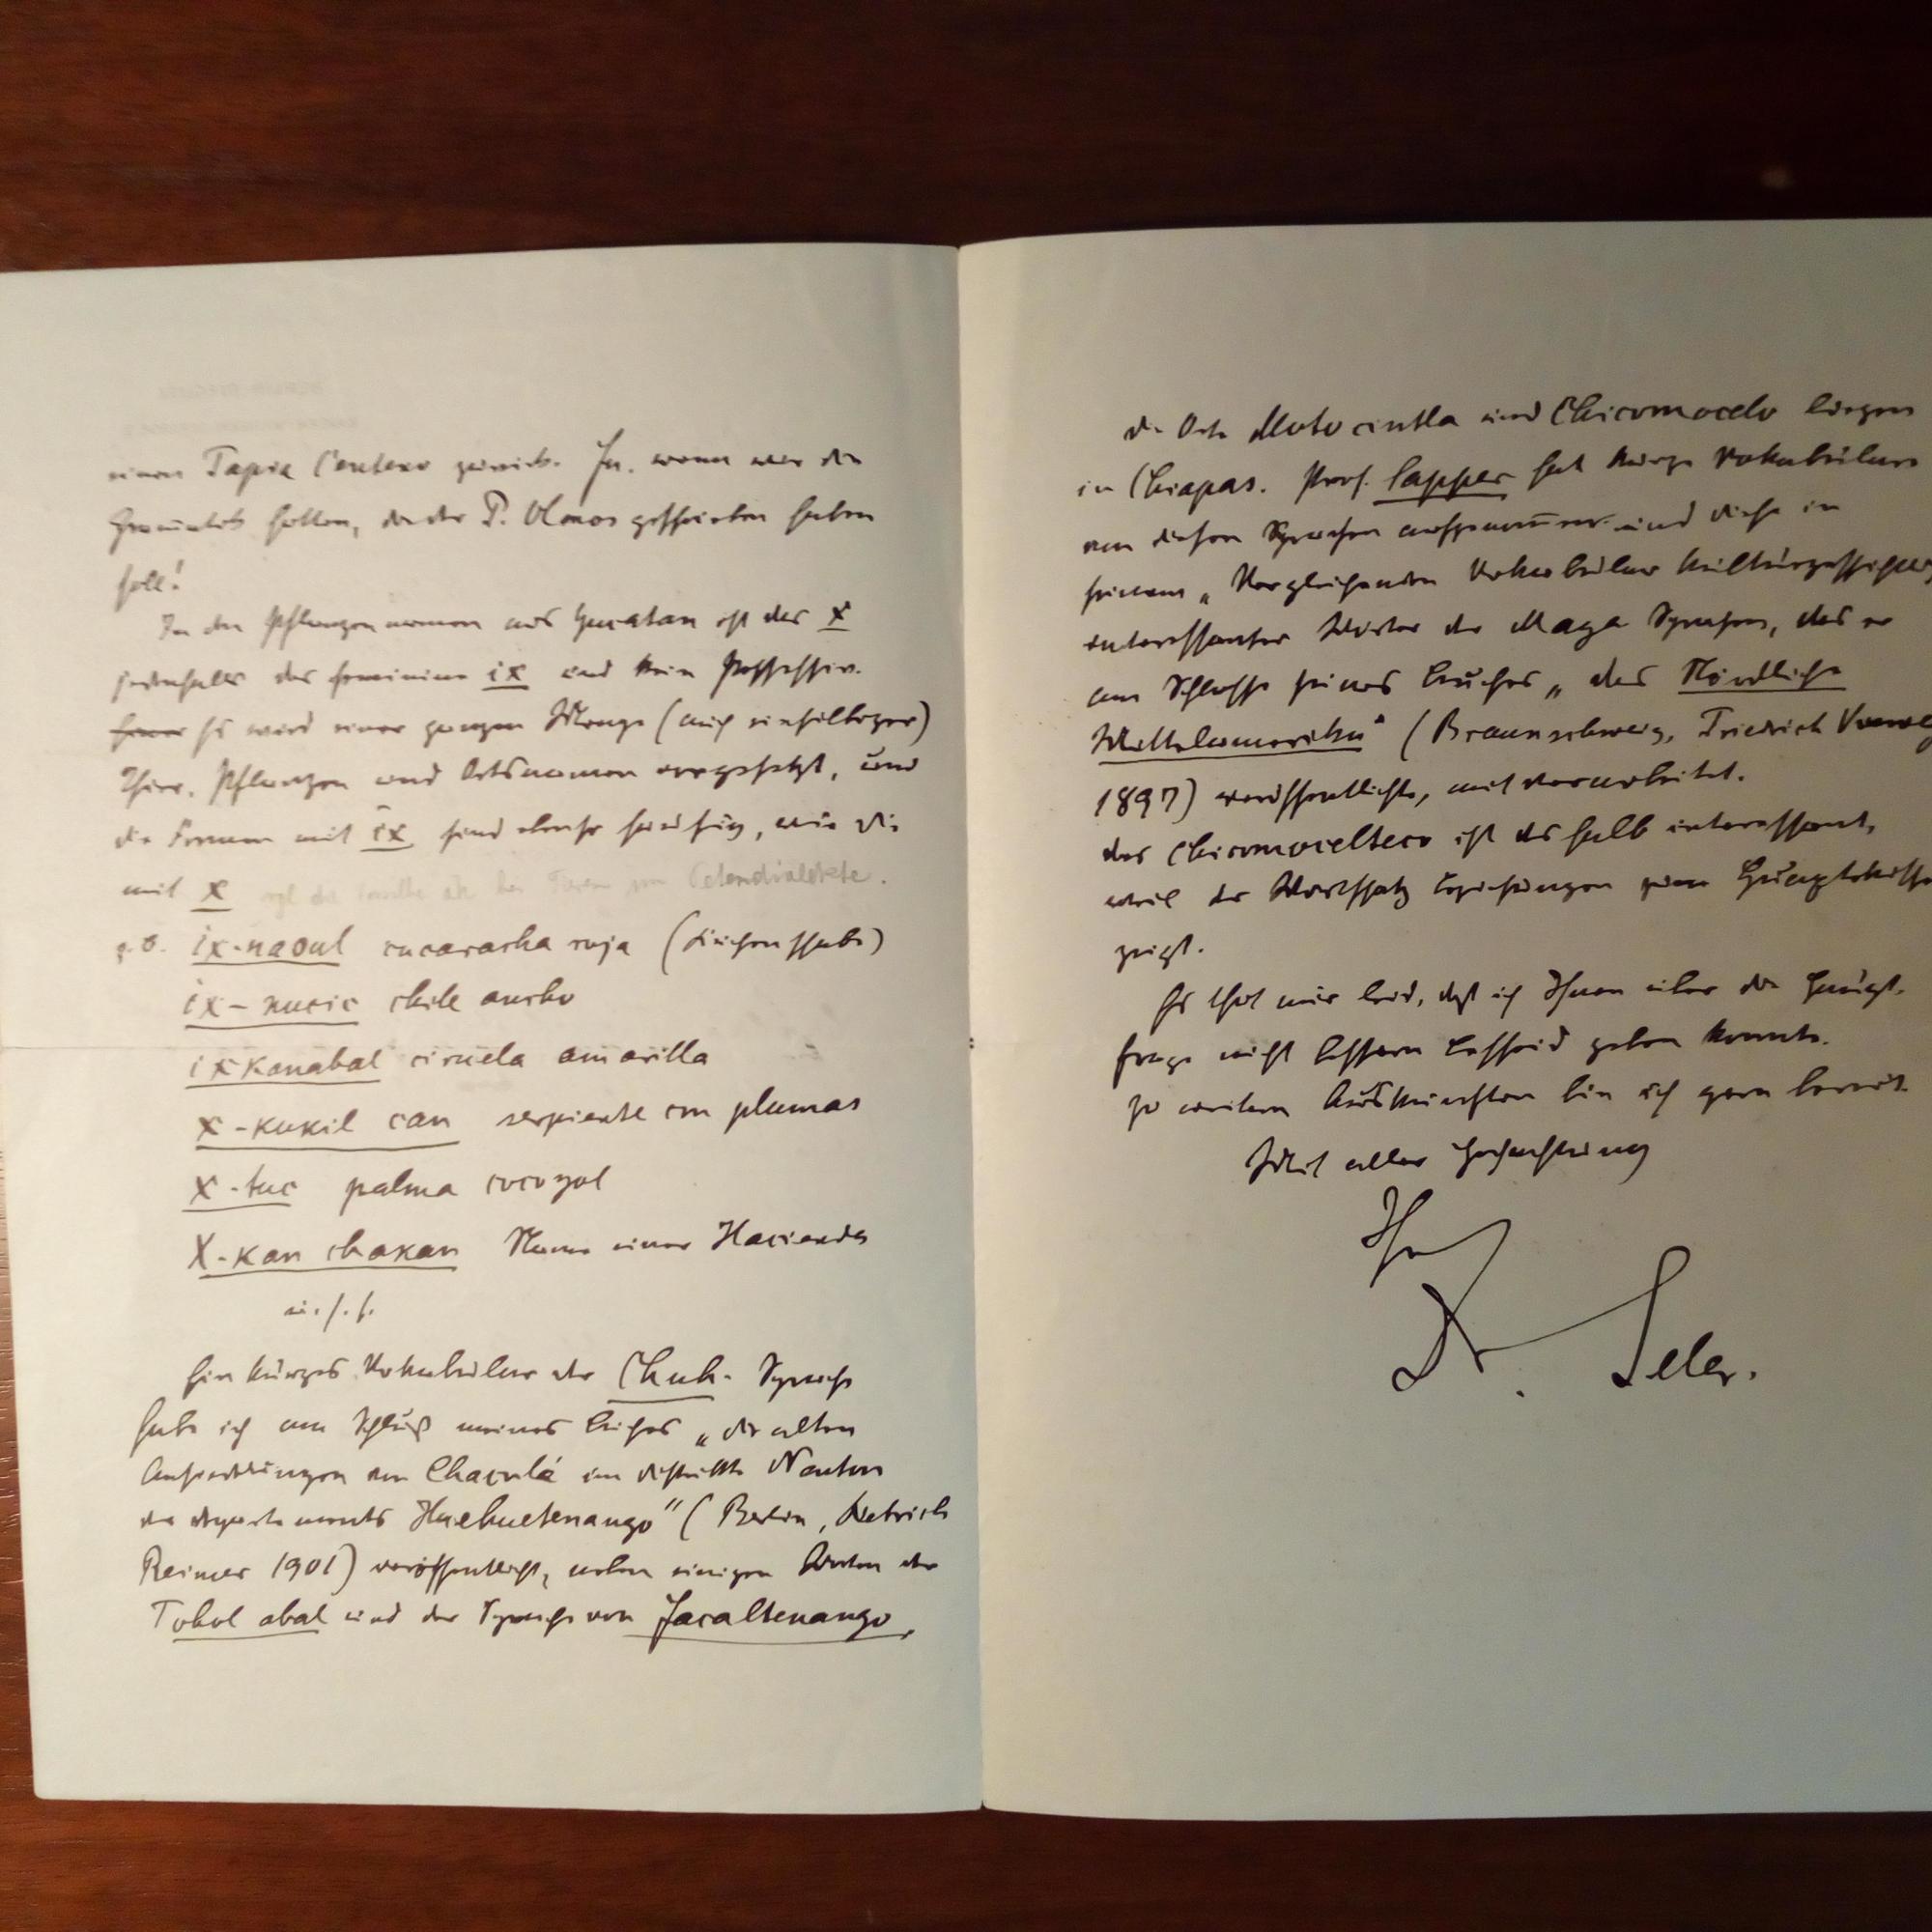 einen Tapia Centeno zurück. Ja, wenn wir die
Grammatik hätten, die der P. Olmos geschrieben haben
soll!
In den Pflanzennamen aus Yucatan ist das x
jedenfalls das feminine ix und kein Possessiv.
Es wird einer ganzen Menge (auch einsilbiger)
Thier, Pflanzen und Ortsnamen vorgesetzt, und
die Formen mit ix sind ebenso häufig, wie die
mit x
z. B. ix-naoul cucaracha roja (Küchenschabe)
ix-nucic chile ancho
ix kanabal ciruela amarilla
x-kukil can serpiente con plumas
x-tuc palma cocoyol
X-kan chakan Name einer Hacienda
u. s. f.
Ein kurzes Vokabular der Chuh-Sprache
habe ich am Schluß meines Buches „die alten
Ansiedlungen von Chaculá im Distrikte Nenton
des Departements Huehuetenango" (Berlin, Dietrich
Reimer 1901) veröffentlicht, neben einigen Worten der
Tohol abal und der Sprache von Jacaltenango.
Die Orte Motocintla und Chicomocelo liegen
in Chiapas. Prof. Sapper hat kurze Vokabulare
von diesen Sprachen aufgenommen und diese in
seinem „Vergleichenden Vokabular kulturgeschichtlich
interessanter Wörter der Maya Sprachen, das er
am Schlusse seines Buches „das Nördliche
Mittelamerika" (Braunschweig, Friedrich Vieweg
1897) veröffentlichte, mit verarbeitet.
das Chicomocelteco ist deshalb interessant,
weil der Wortschatz Beziehungen zum Huaxtekischen
zeigt.
Es thut mir leid, daß ich Ihnen über die Haupt-
frage nicht bessern Bescheid geben konnte.
Zu weitern Auskünften bin ich gern bereit.
Mit aller Hochachtung
Ihr
Dr. Seler.